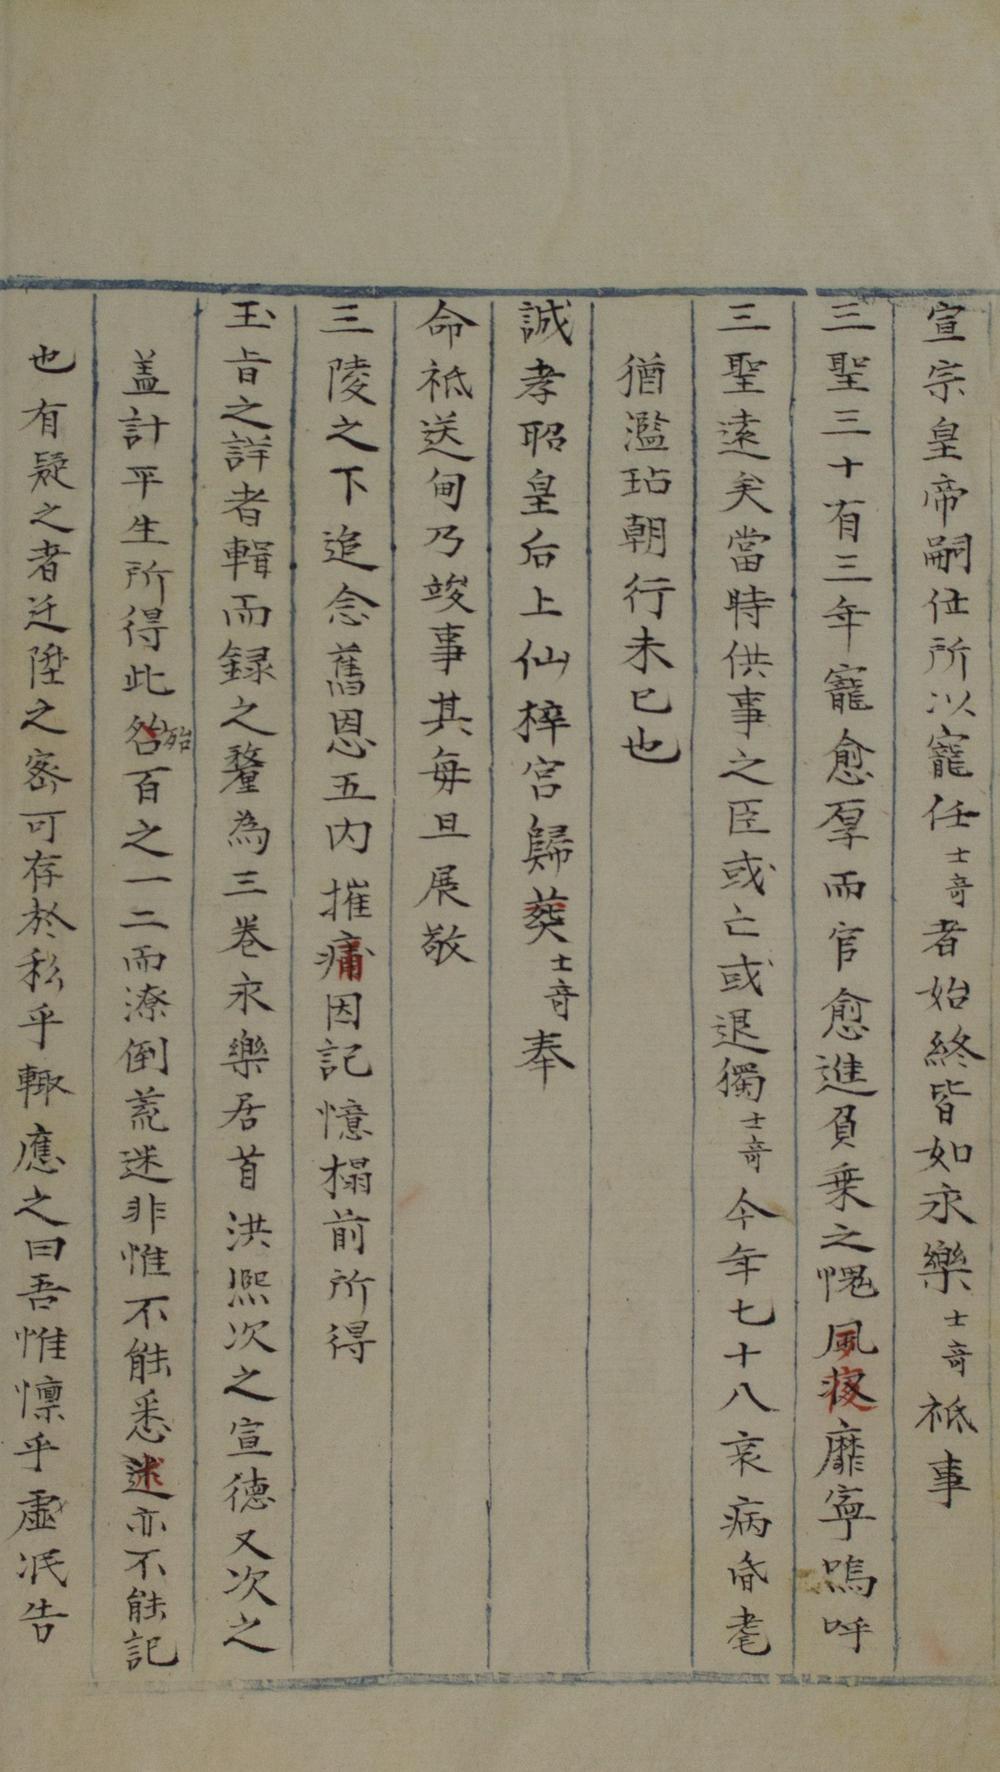 宣宗皇帝嗣位所以寵任士奇者始終皆如永樂士奇祗事
三聖三十有三年寵愈厚而官愈進負乗之愧夙夜靡寧嗚呼
三聖逺矣當時供事之臣或亡或退獨士奇今年七十八衰病昏耄
猶濫玷朝行未已也
誠孝昭皇后上仙梓宫歸葬士奇奉
命祗送甸乃竣事其每旦展敬
三陵之下追念舊恩五内摧痛因記憶榻前所得
玉音之詳者輯而録之釐為三卷永樂居首洪熈次之宣德又次之
盖計平生所得此殆百之一二而潦倒荒迷非惟不能悉述亦不能記
也有疑之者迂陞之密可存於私乎輙應之曰吾惟懔乎虚泯告